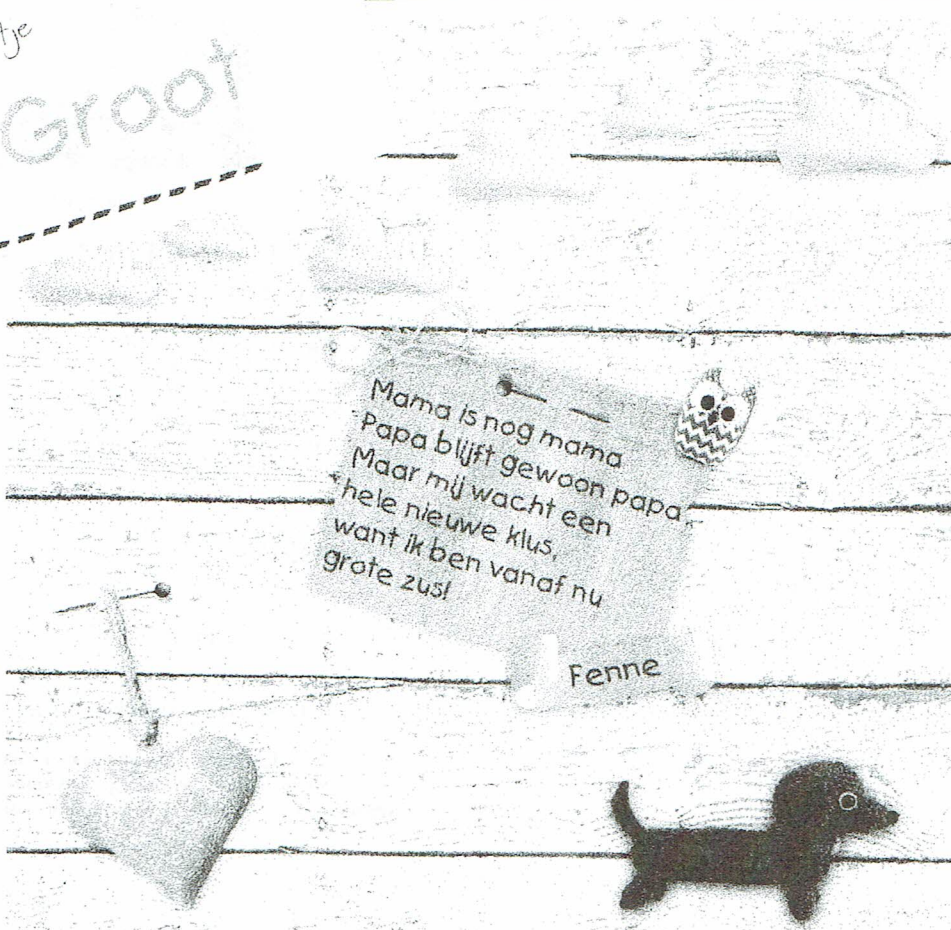 tje
Groot
Mama is nog mama
Papa blijft gewoon papa,
Maar mij wacht een
hele nieuwe klus,
want ik ben vanaf nu
grote zus!
Fenne